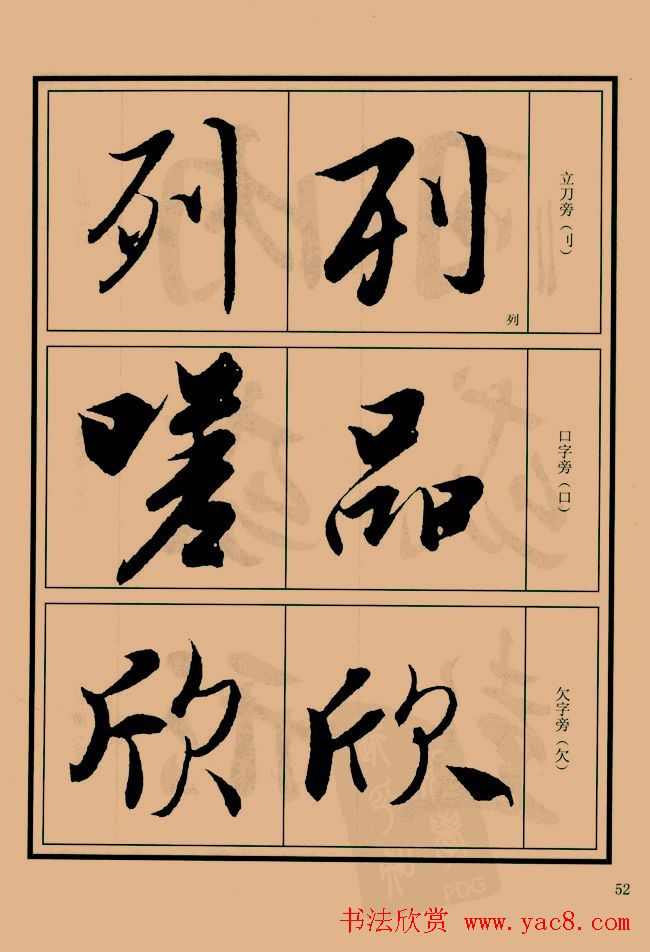 立刀旁（刂）
列
列
列
口字旁（口）
品
嗟
欠字旁（欠）
欣
欣
52
PDG
书法欣赏 www.yac8.com